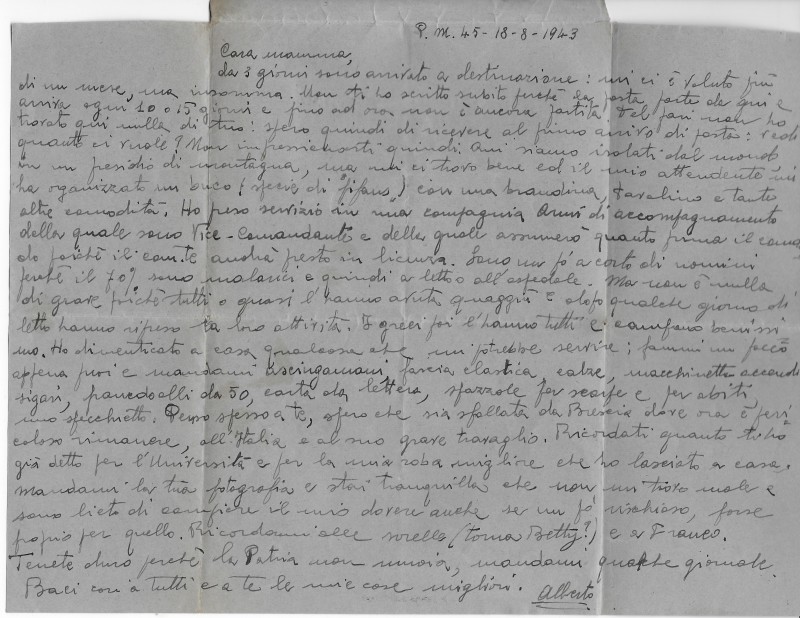 P.M. 45 - 18-8-1943
Cara mamma,
da 3 giorni sono arrivato a destinazione: mi ci è voluto più
di un mese, ma insomma. Non ti ho scritto subito perché la posta parte da qui e
arriva ogni 10 o 15 giorni e fino ad ora non è ancora partita. Del pari non ho
trovato qui nulla di tuo: spero quindi di ricevere al primo arrivo di posta:
quanto ci vuole? Non impressionarti quindi. Qui siamo isolati dal mondo
in un presidio di montagna, ma mi ci trovo bene ed il mio attendente mi
ha organizzato un buco (specie di ) con una brandina, tavolino e tante
altre comodità. Ho preso servizio in una compagnia Armi di accompagnamento
della quale sono Vice-Comandante e della quale assumerò quanto prima il coman
do poiché il com.te andrà presto in licenza. Sono un po' a corto di uomini
perché il 70% sono malarici e quindi a letto o all'ospedale. Ma non è nulla
di grave poiché tutti o quasi l'hanno avuta quaggiù e dopo qualche giorno di
letto hanno ripreso la loro attività. I greci poi l'hanno tutti e campano benissi
mo. Ho dimenticato a casa qualcosa che mi potrebbe servire; fammi un pacco
appena puoi e mandami asciugamani, fascia elastica, calze, macchinetta accendi
sigari, francobolli da 50, carta da lettera, spazzole per scarpe e per abiti,
uno specchietto. Penso spesso a te, spero che sia sfollata da Brescia dove ora è peri
coloso rimanere, all'Italia e al suo grave travaglio. Ricordati quanto ti ho
già detto per l'Università e per la mia roba migliore che ho lasciato a casa.
Mandami la tua fotografia e stai tranquilla che non mi trovo male e
sono lieto di compiere il mio dovere anche se un po' rischioso, forse
proprio per quello. Ricordami alle sorelle (torna Betty?) e a Franco.
Tenete duro perché la Patria non muoia, mandami qualche giornale.
Baci cari a tutti e a te le mie cose migliori. Alberto